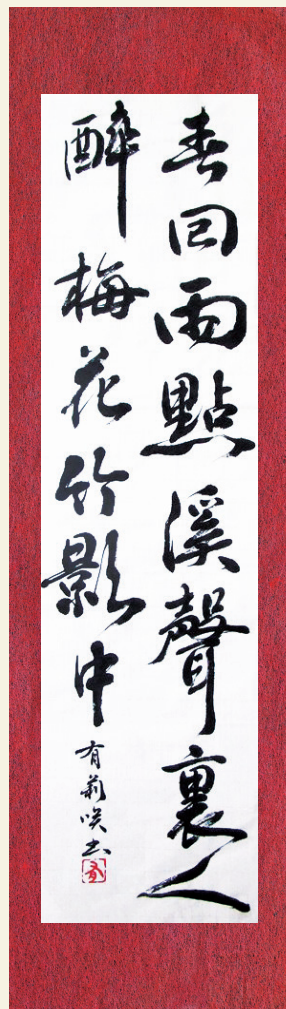 春回雨點溪聲裏人
醉梅花竹影中
有莉咲书